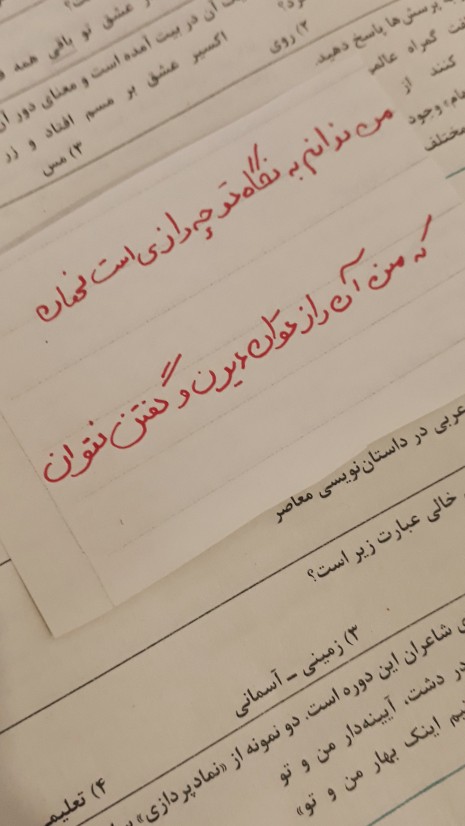 عشق تو باقی همه
آن در بیت آمده است و معنای دور آن
۲) روی
اکسیر عشق بر مسم افتاد و زر
۳) مس
پرسش‌ها پاسخ دهید.
گمراه عالم
کنند از
وجود
مختلف
من ندانم به نگاه تو چه رازی است نهان
که من آن راز توان دیدن و گفتن نتوان
عربی در داستان‌نویسی معاصر
خالی عبارت زیر است؟
۳) زمینی - آسمانی
شاعران این دوره است. دو نمونه از «نمادپردازی»
در دشت، آیینه‌دار من و تو
اینک بهار من و تو»
۴) تعلیمی